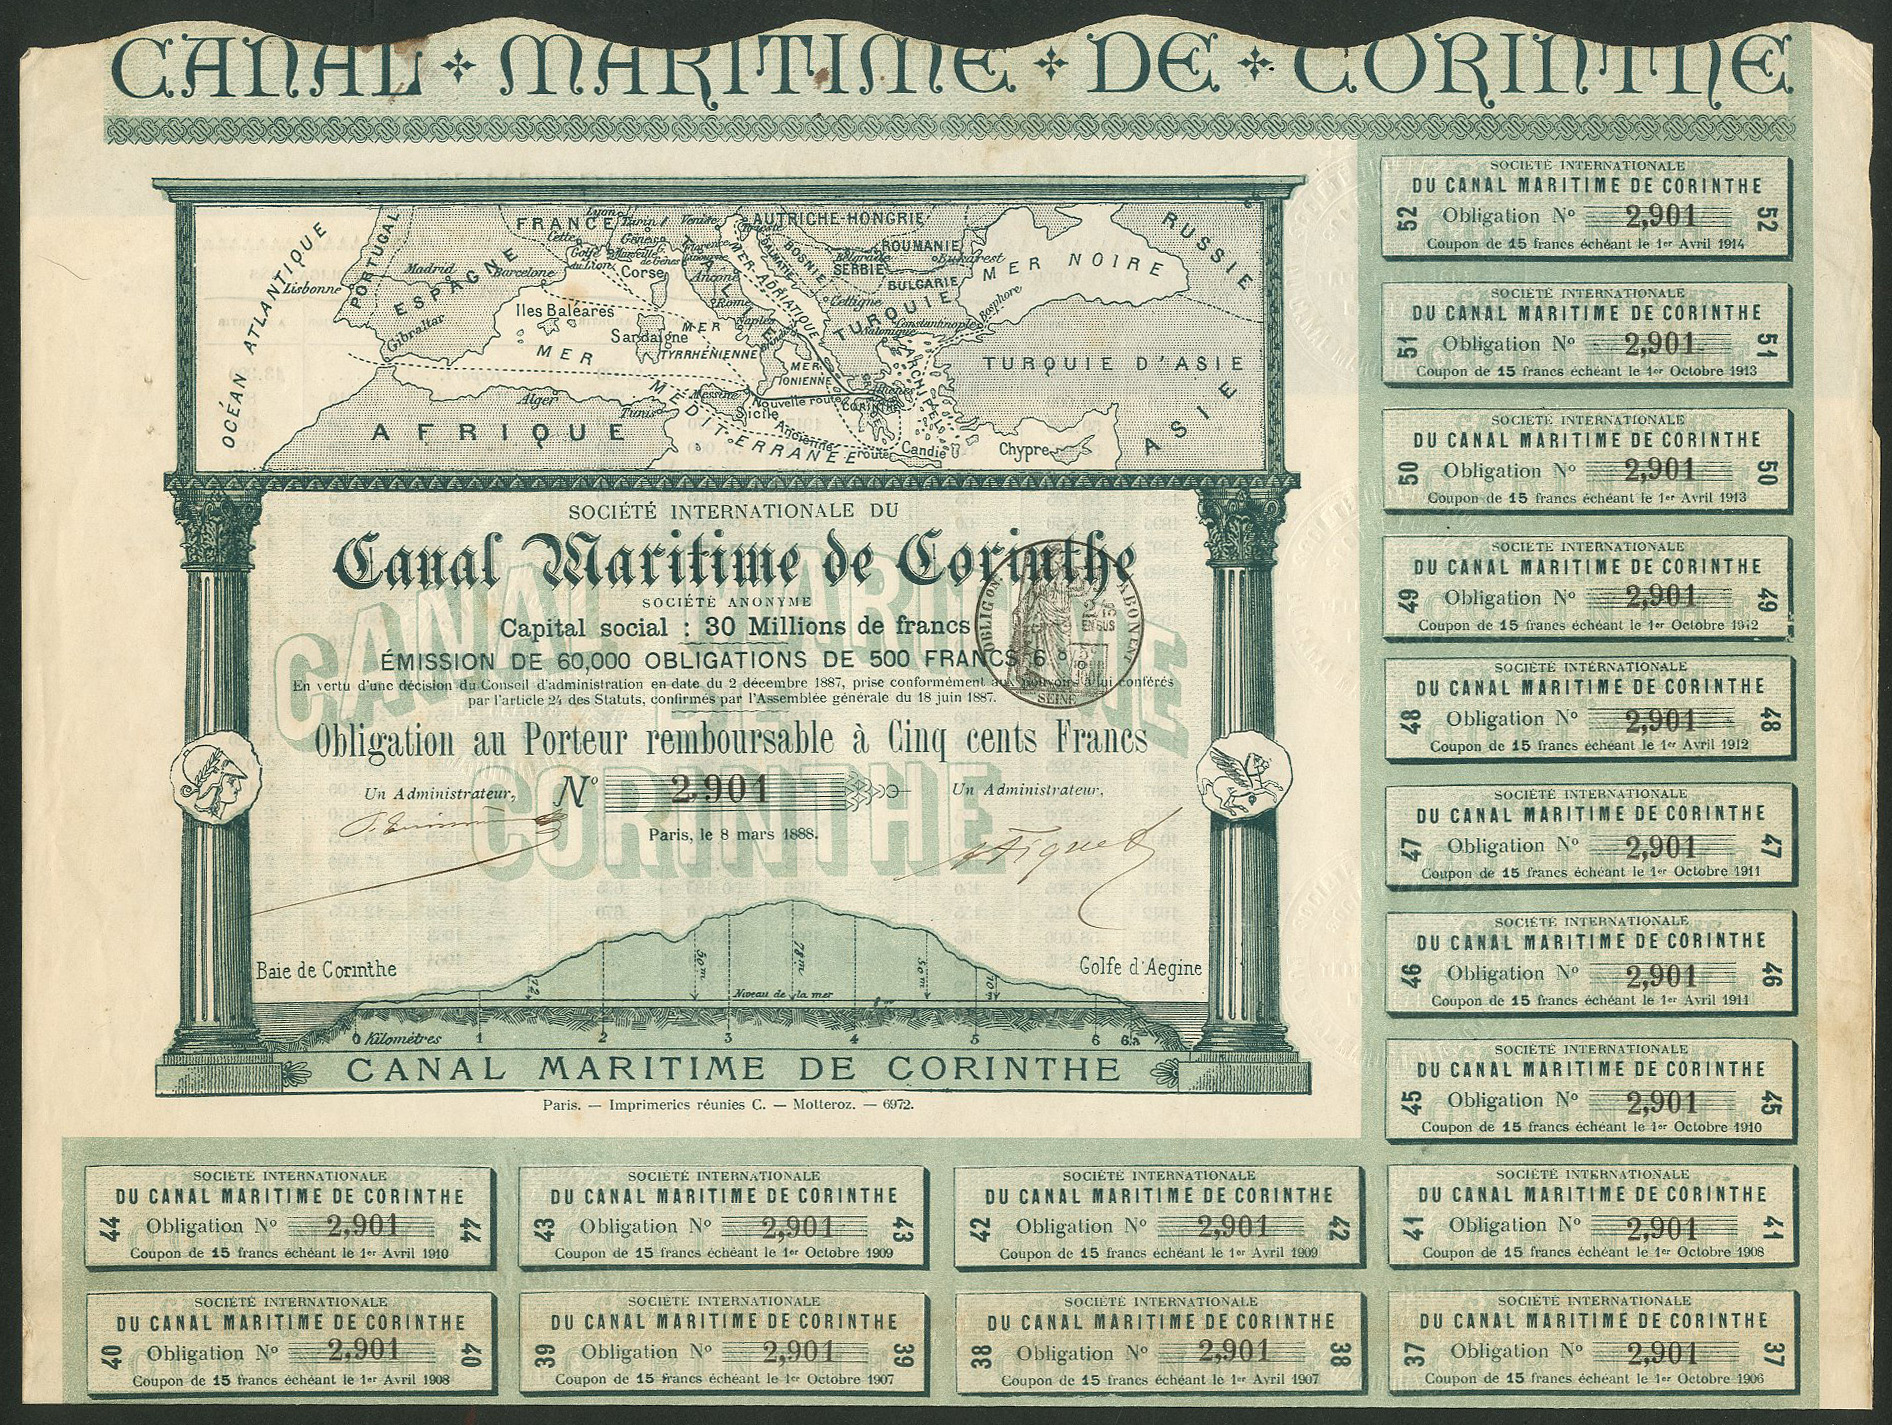 CANAL MARITIME DE CORINTHE
OCÉAN ATLANTIQUE
PORTUGAL
Lisbonne
Madrid
ESPAGNE
Barcelone
Gibraltar
FRANCE
Lyon
Turin
Venise
Cette
Gênes
Marseille
Golfe du Lion
G. de Gênes
Florence
Livourne
Corse
Ancône
Rome
ITALIE
Naples
Iles Baléares
Sardaigne
MER TYRRHÉNIENNE
MER ADRIATIQUE
AUTRICHE-HONGRIE
Trieste
DALMATIE
BOSNIE
Belgrade
SERBIE
ROUMANIE
Bukarest
BULGARIE
Cettigne
TURQUIE
Constantinople
Salonique
Bosphore
MER NOIRE
RUSSIE
TURQUIE D'ASIE
ASIE
ARCHIPEL
Athènes
CORINTHE
MER IONIENNE
Messine
Sicile
Nouvelle route
Ancienne route
MER MÉDITERRANÉE
Candie
Chypre
Alger
Tunis
AFRIQUE
SOCIÉTÉ INTERNATIONALE DU
Canal Maritime de Corinthe
SOCIÉTÉ ANONYME
Capital social : 30 Millions de francs
ÉMISSION DE 60,000 OBLIGATIONS DE 500 FRANCS 6
En vertu d'une décision du Conseil d'administration en date du 2 décembre 1887, prise conformément aux pouvoirs à lui conférés
par l'article 24 des Statuts, confirmés par l'Assemblée générale du 18 juin 1887.
SEINE
CANAL MARITIME
DE
CORINTHE
Obligation au Porteur remboursable à Cinq cents Francs
Un Administrateur,
No 2,901
Un Administrateur,
Paris, le 8 mars 1888.
Baie de Corinthe
Golfe d'Aegine
Niveau de la mer
8 m
0 Kilomètres 1 2 3 4 5 6
CANAL MARITIME DE CORINTHE
Paris. — Imprimeries réunies C. — Motteroz. — 6972.
SOCIÉTÉ INTERNATIONALE
DU CANAL MARITIME DE CORINTHE
52 Obligation No 2,901 52
Coupon de 15 francs échéant le 1er Avril 1914
SOCIÉTÉ INTERNATIONALE
DU CANAL MARITIME DE CORINTHE
51 Obligation No 2,901 51
Coupon de 15 francs échéant le 1er Octobre 1913
SOCIÉTÉ INTERNATIONALE
DU CANAL MARITIME DE CORINTHE
50 Obligation No 2,901 50
Coupon de 15 francs échéant le 1er Avril 1913
SOCIÉTÉ INTERNATIONALE
DU CANAL MARITIME DE CORINTHE
49 Obligation No 2,901 49
Coupon de 15 francs échéant le 1er Octobre 1912
SOCIÉTÉ INTERNATIONALE
DU CANAL MARITIME DE CORINTHE
48 Obligation No 2,901 48
Coupon de 15 francs échéant le 1er Avril 1912
SOCIÉTÉ INTERNATIONALE
DU CANAL MARITIME DE CORINTHE
47 Obligation No 2,901 47
Coupon de 15 francs échéant le 1er Octobre 1911
SOCIÉTÉ INTERNATIONALE
DU CANAL MARITIME DE CORINTHE
46 Obligation No 2,901 46
Coupon de 15 francs échéant le 1er Avril 1911
SOCIÉTÉ INTERNATIONALE
DU CANAL MARITIME DE CORINTHE
45 Obligation No 2,901 45
Coupon de 15 francs échéant le 1er Octobre 1910
SOCIÉTÉ INTERNATIONALE
DU CANAL MARITIME DE CORINTHE
44 Obligation No 2,901 44
Coupon de 15 francs échéant le 1er Avril 1910
SOCIÉTÉ INTERNATIONALE
DU CANAL MARITIME DE CORINTHE
43 Obligation No 2,901 43
Coupon de 15 francs échéant le 1er Octobre 1909
SOCIÉTÉ INTERNATIONALE
DU CANAL MARITIME DE CORINTHE
42 Obligation No 2,901 42
Coupon de 15 francs échéant le 1er Avril 1909
SOCIÉTÉ INTERNATIONALE
DU CANAL MARITIME DE CORINTHE
41 Obligation No 2,901 41
Coupon de 15 francs échéant le 1er Octobre 1908
SOCIÉTÉ INTERNATIONALE
DU CANAL MARITIME DE CORINTHE
40 Obligation No 2,901 40
Coupon de 15 francs échéant le 1er Avril 1908
SOCIÉTÉ INTERNATIONALE
DU CANAL MARITIME DE CORINTHE
39 Obligation No 2,901 39
Coupon de 15 francs échéant le 1er Octobre 1907
SOCIÉTÉ INTERNATIONALE
DU CANAL MARITIME DE CORINTHE
38 Obligation No 2,901 38
Coupon de 15 francs échéant le 1er Avril 1907
SOCIÉTÉ INTERNATIONALE
DU CANAL MARITIME DE CORINTHE
37 Obligation No 2,901 37
Coupon de 15 francs échéant le 1er Octobre 1906